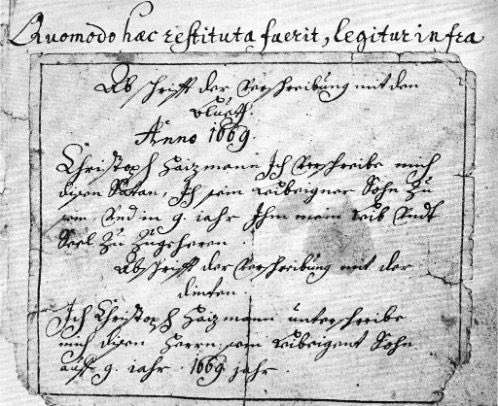 Quomodo hæc restituta fuerit, legitur infra
Abschrifft der Verschreibung mit dem
Blueth.
Anno 1669.
Christoph Haizmann Ich Verschreibe mich
disen Satan, Ich sein leibeigner Sohn Zu
sein, Vnd in 9. iahr Ihm mein leib Vndt
Seel Zu Zugeheren.
Abschrifft der Verschreibung mit der
dinten.
Ich Christoph Haizmann unterschreibe
mich disen Herrn, sein leibeigent Sohn
auff 9. iahr. 1669 jahr.